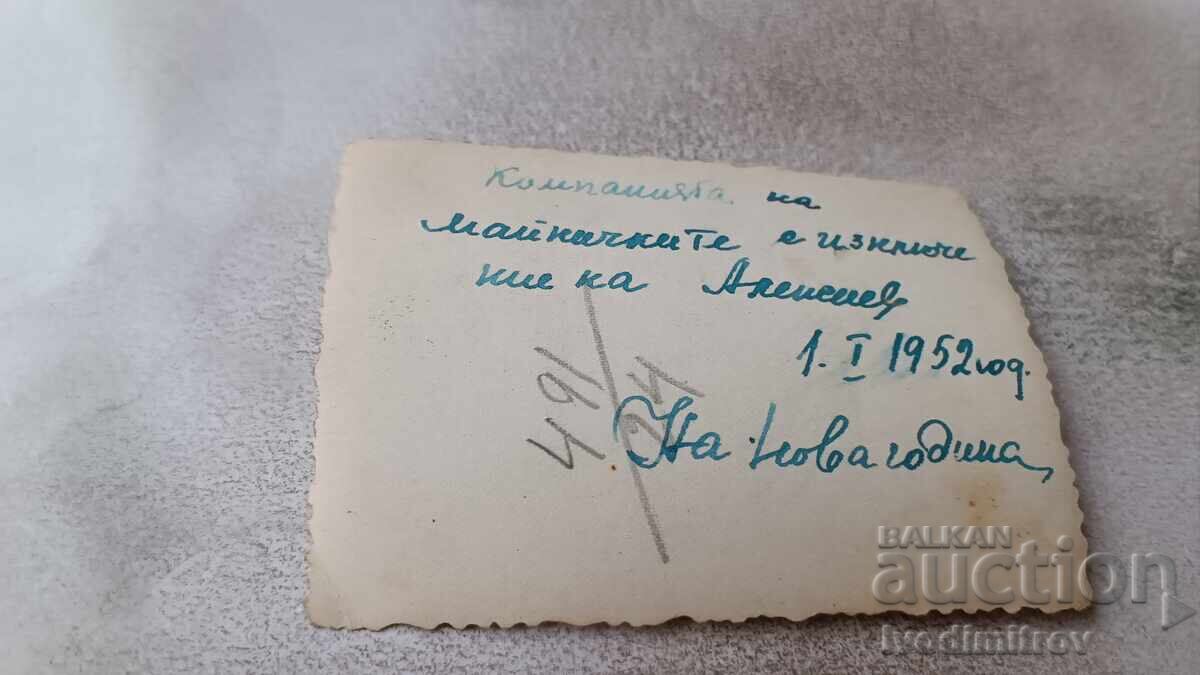 Компанията на
майничките с изключе
ние на Алексиев
1. I 1952 год.
На Нова година
491/24
BALKAN
auction
Ivodimitrov